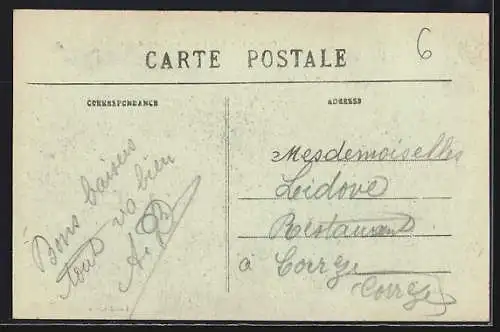 6
CARTE POSTALE
CORRESPONDANCE
Bons baisers
tout va bien
ADRESSE
Mesdemoiselles
Lidove
Restaurant
à Corrèze
Corrèze